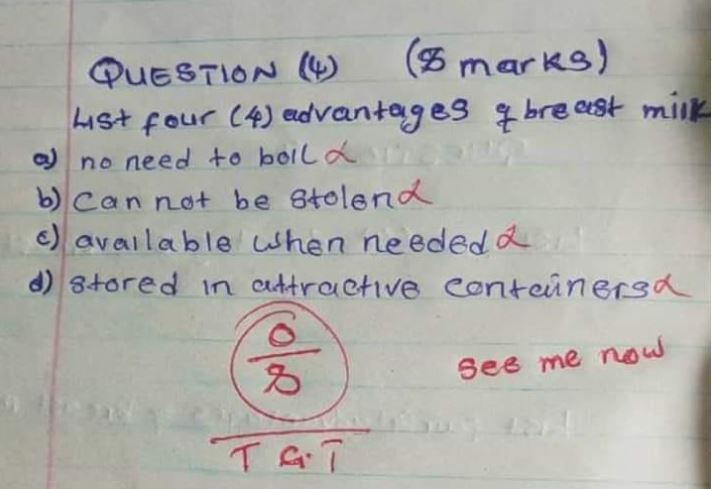 QUESTION (4) (8 marks)
List four (4) advantages of breast milk
a) no need to boil
b) Can not be stolen
c) available when needed
d) stored in attractive containers
0/8
see me now
T G.T